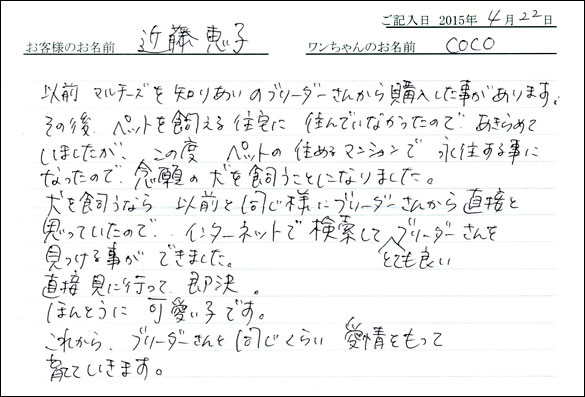 ご記入日 2015年4月22日
お客様のお名前 近藤恵子 ワンちゃんのお名前 COCO
以前 マルチーズを知りあいのブリーダーさんから購入した事があります。
その後、ペットを飼える住宅に住んでいなかったので あきらめて
いましたが、この度 ペットの住めるマンションで永住する事に
なったので 念願の犬を飼うことになりました。
犬を飼うなら 以前と同じ様にブリーダーさんから直接と
思っていたので、インターネットで検索してブリーダーさんを
とても良い
見つける事ができました。
直接見に行って 即決。
ほんとうに可愛い子です。
これから、ブリーダーさんと同じくらい 愛情をもって
育ていきます。